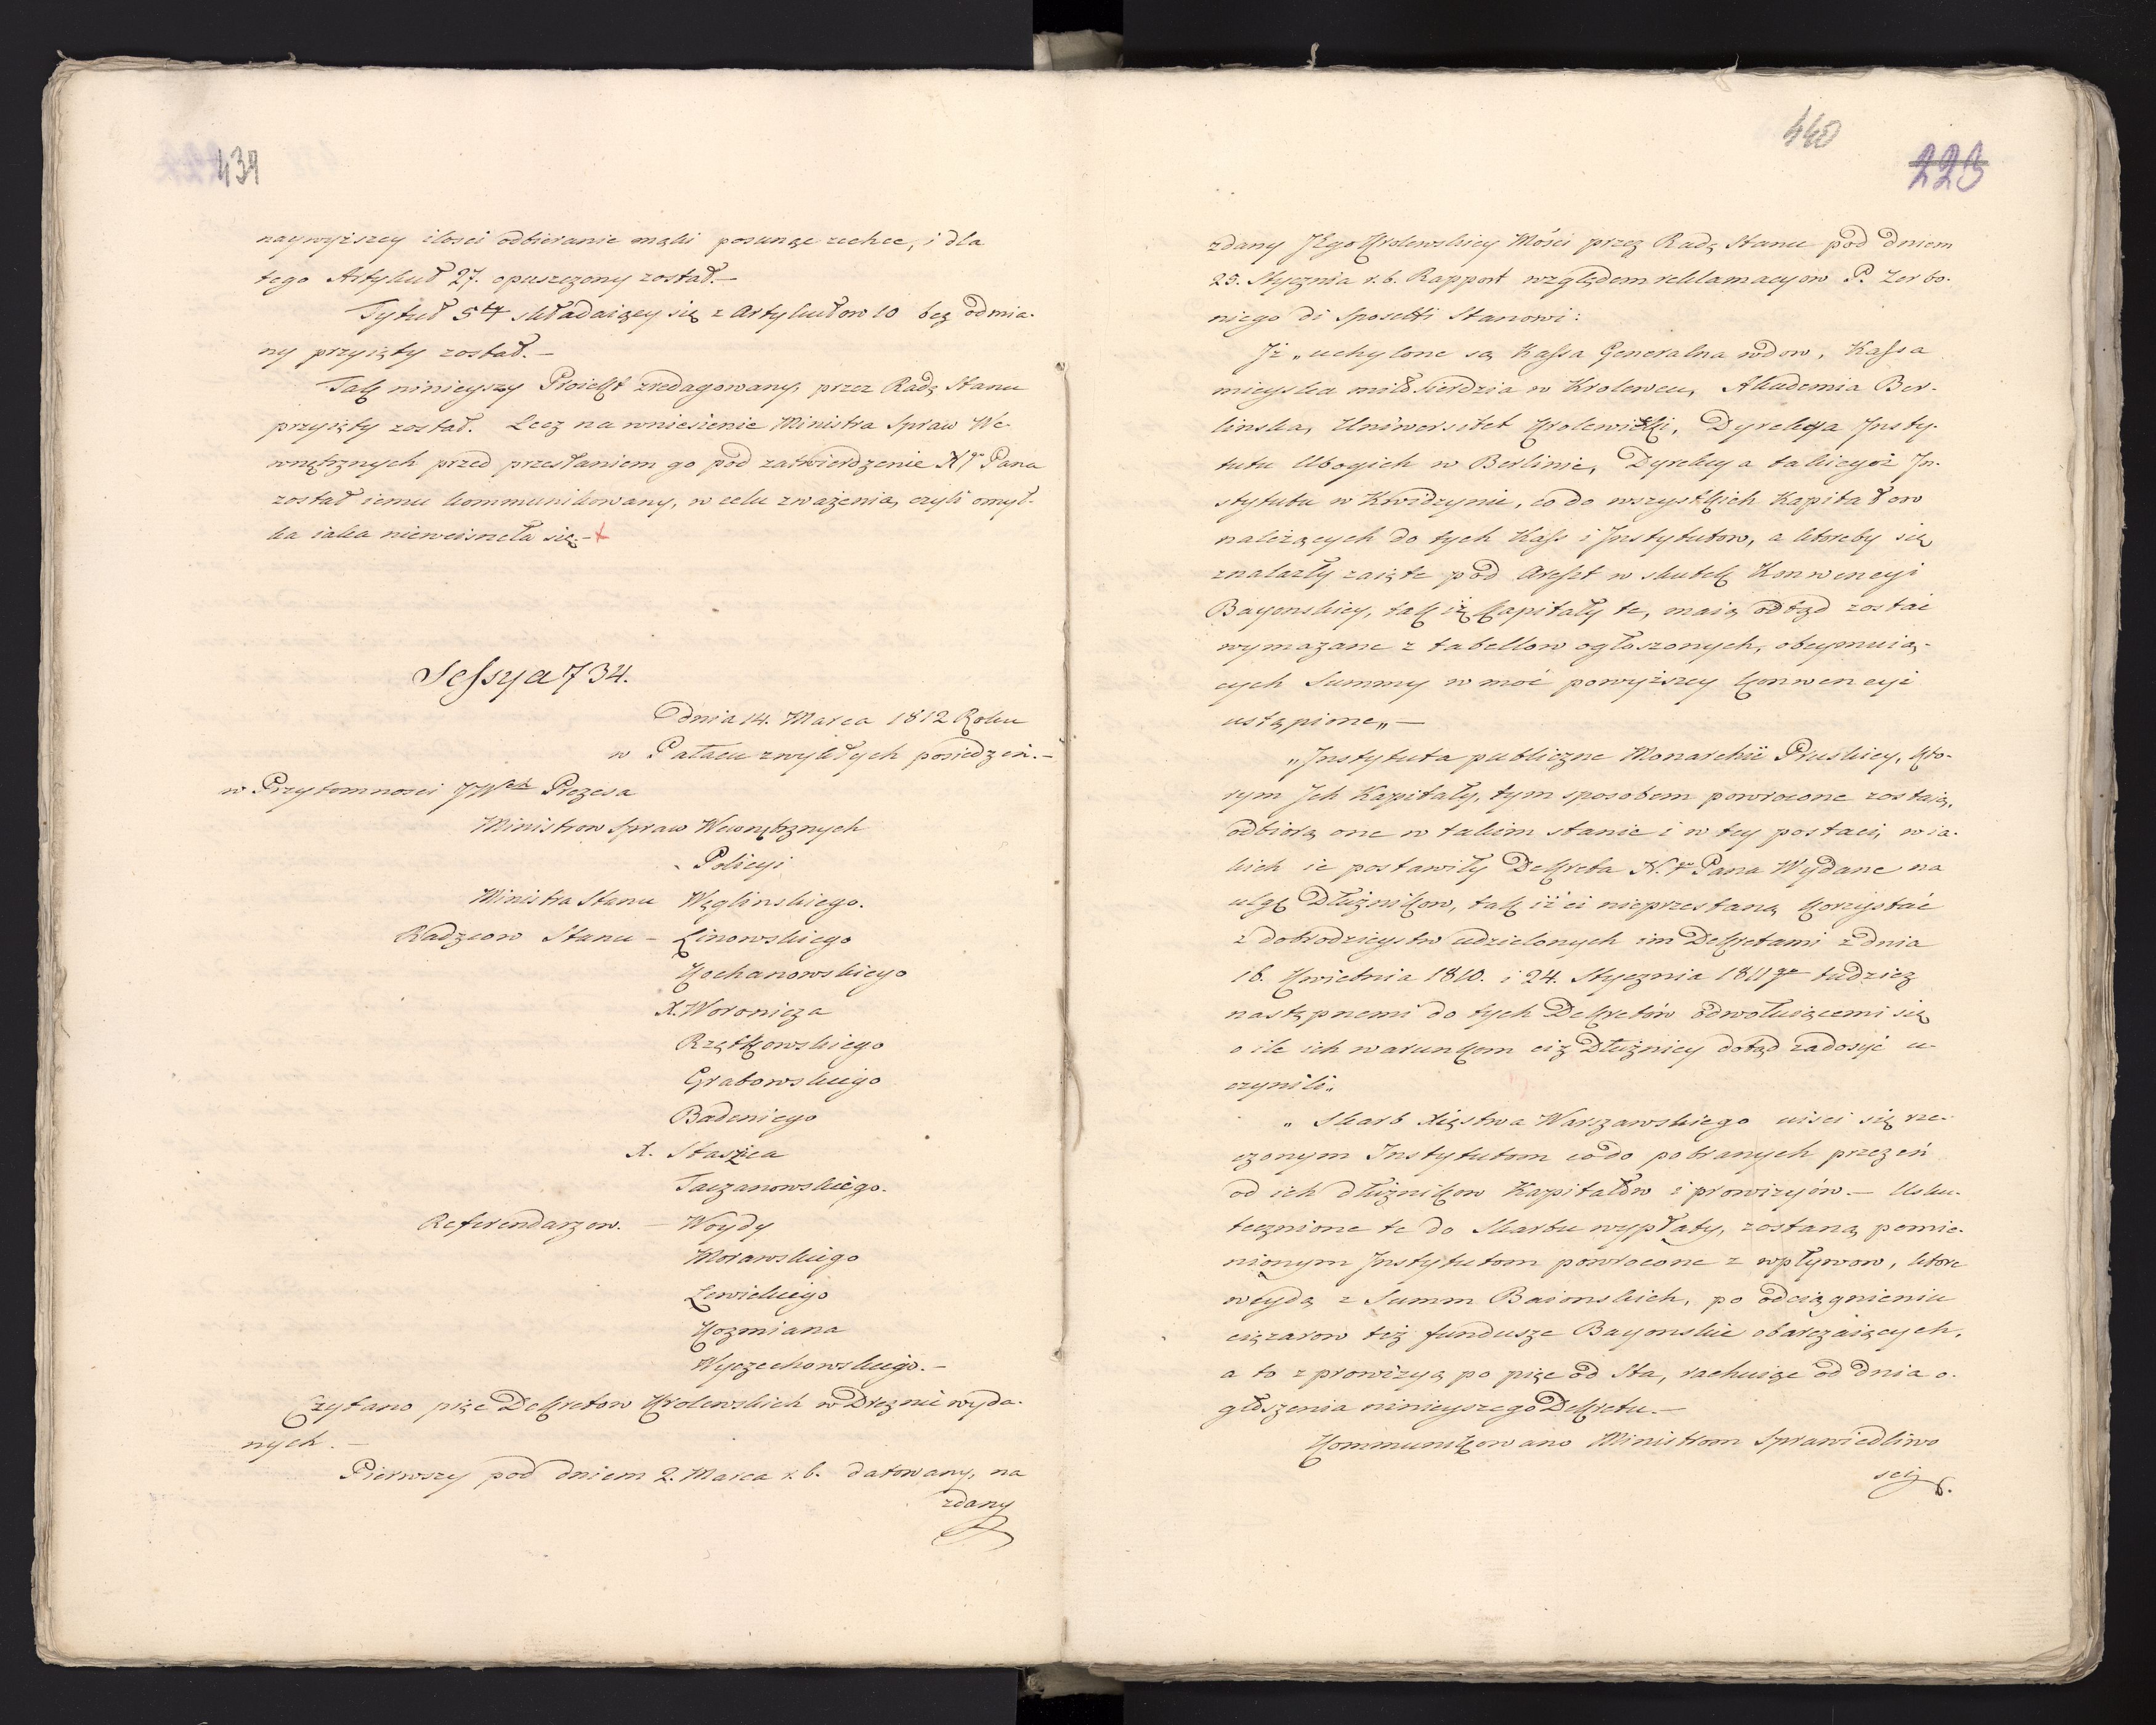 439
naywyższey ilosci odbieranie mąki posunąc zechce, i dla
tego Artykuł 27. opuszczony został.—
Tytuł 5ty składaiący się z Artykułow 10 bez odmia-
ny przyięty został.—
Tak ninieyszy Proiekt zredagowany, przez Radę Stanu
przyięty został. Lecz na wniesienie Ministra Spraw We-
wnętrznych przed przesłaniem go pod zatwierdzenie N.go Pana
został iemu kommunikowany, w celu zważenia, czyli omył-
ka iaka niewcisneła się.—
Sessya 734.
dnia 14. Marca 1812 Roku
w Pałacu zwykłych posiedzeń.—
w Przytomnosci JWch Prezesa
Ministrow Spraw Wewnętrznych
- Policyi
Ministra Stanu Węglinskiego.
Radzcow Stanu - Linowskiego
Kochanowskiego
X. Woronicza
Rzętkowskiego
Grabowskiego
Badeniego
X. Staszica
Taczanowskiego.
Referendarzow. — Woydy
Morawskiego
Lewickiego
Kozmiana
Wyczechowskiego.—
Czytano pięc Dekretow Krolewskich w Dreznie wyda-
nych.—
Pierwszy pod dniem 2. Marca r. b. datowany, na
zdany
440
223
zdany JEgo Krolewskiey Mości przez Radę Stanu pod dniem
25. Stycznia r. b. Rapport względem reklamacyow P. Zerbo-
niego di Sposetti Stanowi:
Iż „uchylone są Kassa Generalna wdow, Kassa
mieyska miłosierdzia w Krolewcu, Akademia Ber-
linska, Uniwersitet Krolewiecki, Dyrekcya Insty-
tutu Ubogich w Berlinie, Dyrekcya takiegoż In-
stytutu w Kwidzynie, co do wszystkich Kapitałow
należących do tych Kass i Instytutow, a ktoreby się
znalazły zaięte pod Areszt w skutek Konwencyi
Bayonskiey, tak iż Kapitały te, maią odtąd zostać
wymazane z tabellow ogłoszonych, obeymuią-
cych Summy w moć powyższey Konwencyi
ustąpione„—
„Instytuta publiczne Monarchii Pruskiey, kto-
rym Ich Kapitały, tym sposobem powrocone zostaią,
odbiorą one w takim stanie i w tey postaci, w ia-
kich ie postawiły Dekreta N.go Pana Wydane na
ulgę Dłużnikow, tak iż ci nieprzestaną korzystać
z dobrodzieystw udzielonych im Dekretami z dnia
16. Kwietnia 1810. i 24. Stycznia 1811go tudzież
następnemi do tych Dekretów odwołuiącemi się
o ile ich warunkom ciż Dłużnicy dotąd zadosyć u-
czynili„
„Skarb Xięstwa Warszawskiego uiści się rze-
czonym Instytutom co do pobranych przezeń
od ich dłużnikow Kapitałów i prowizyów.— Usku-
tecznione te do Skarbu wypłaty, zostaną pomie-
nionym Instytutom powrocone z wpływow, ktore
weydą z Summ Baionskich, po odciągnieniu
cięzarow też fundusze Bayonskie obarczaiących,
a to z prowizyą po pięc od Sta, rachuiąc od dnia o-
głoszenia ninieyszego Dekretu.—
Kommunikowano Ministrom Sprawiedliwo
sci